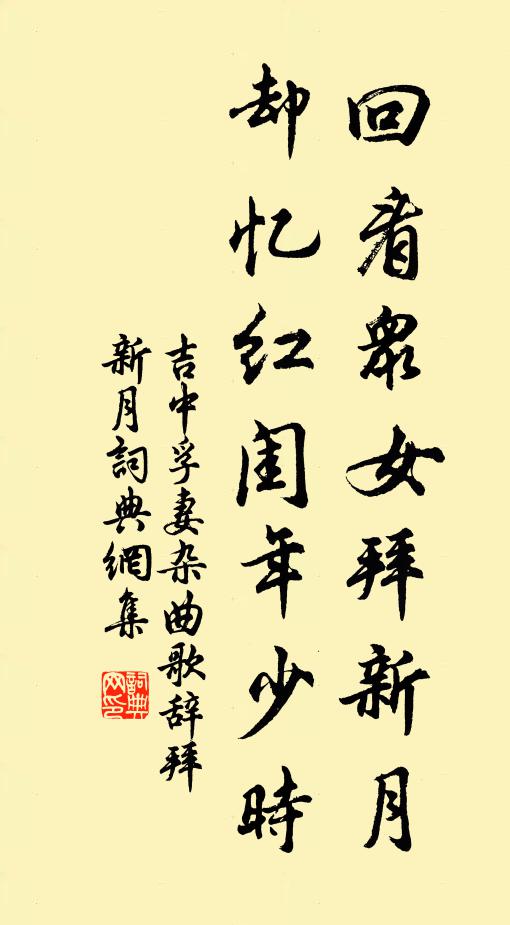 回看眾女拜新月
却忆红闺年少時
吉中孚妻杂曲歌辞拜
新月詞典網集
詞典
网印